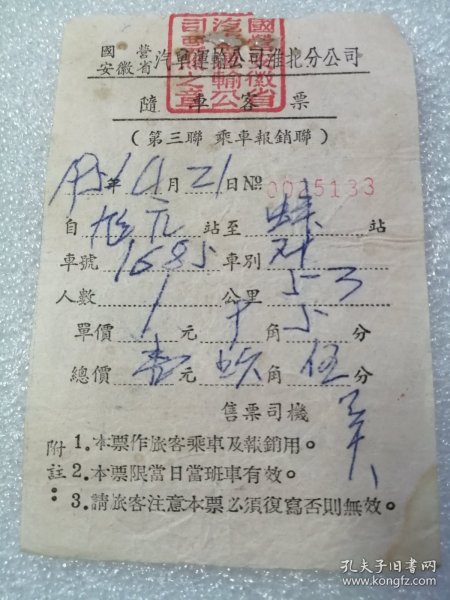 國營
安徽省 汽車運輸公司淮北分公司
隨車客票
（第三聯 乘車報銷聯）
1951年 9月 21日 №0025133
自 站至 蚌 站
車號 1685 車別 对
人數 1 公里 53
單價 1 元 角 5 分
總價 壹 元 玖 角 伍 分
售票司機
附註：
1.本票作旅客乘車及報銷用。
2.本票限當日當班車有效。
3.請旅客注意本票必須復寫否則無效。
孔夫子旧书网
www.kongfz.com